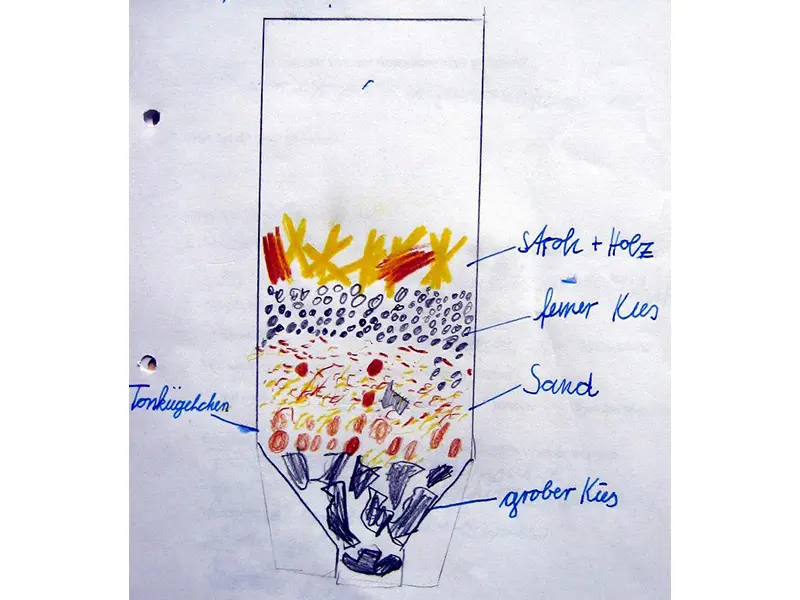 Stroh + Holz
feiner Kies
Sand
Tonkügelchen
grober Kies